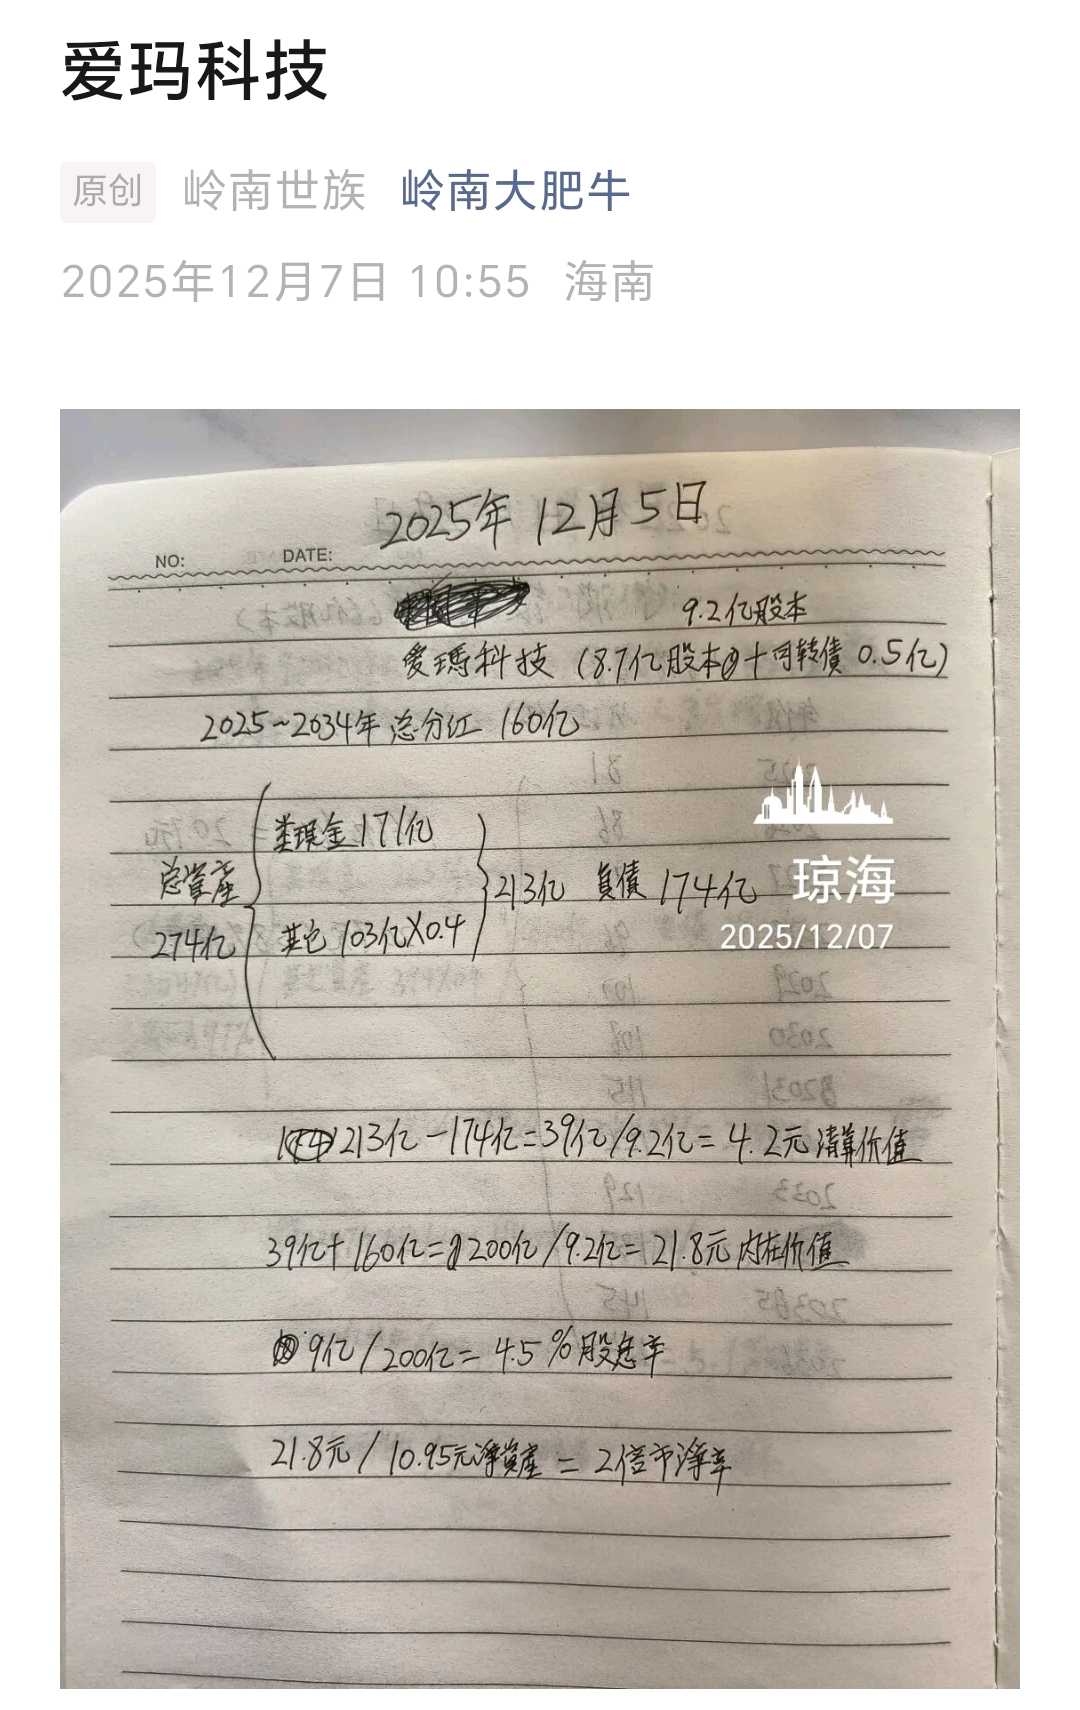 爱玛科技
原创 岭南世族 岭南大肥牛
2025年12月7日 10:55 海南
2025年12月5日
NO: DATE:
9.2亿股本
爱瑪科技 (8.7亿股本+可转債 0.5亿)
2025~2034年 总分红 160亿
类現金171亿
总資產 213亿 負債 174亿
274亿 其它 103亿×0.4
琼海
2025/12/07
213亿-174亿=39亿/9.2亿=4.2元 清算价值
39亿+160亿=200亿/9.2亿=21.8元 内在价值
9亿/200亿=4.5%股息率
21.8元/10.95元净資産=2倍市净率